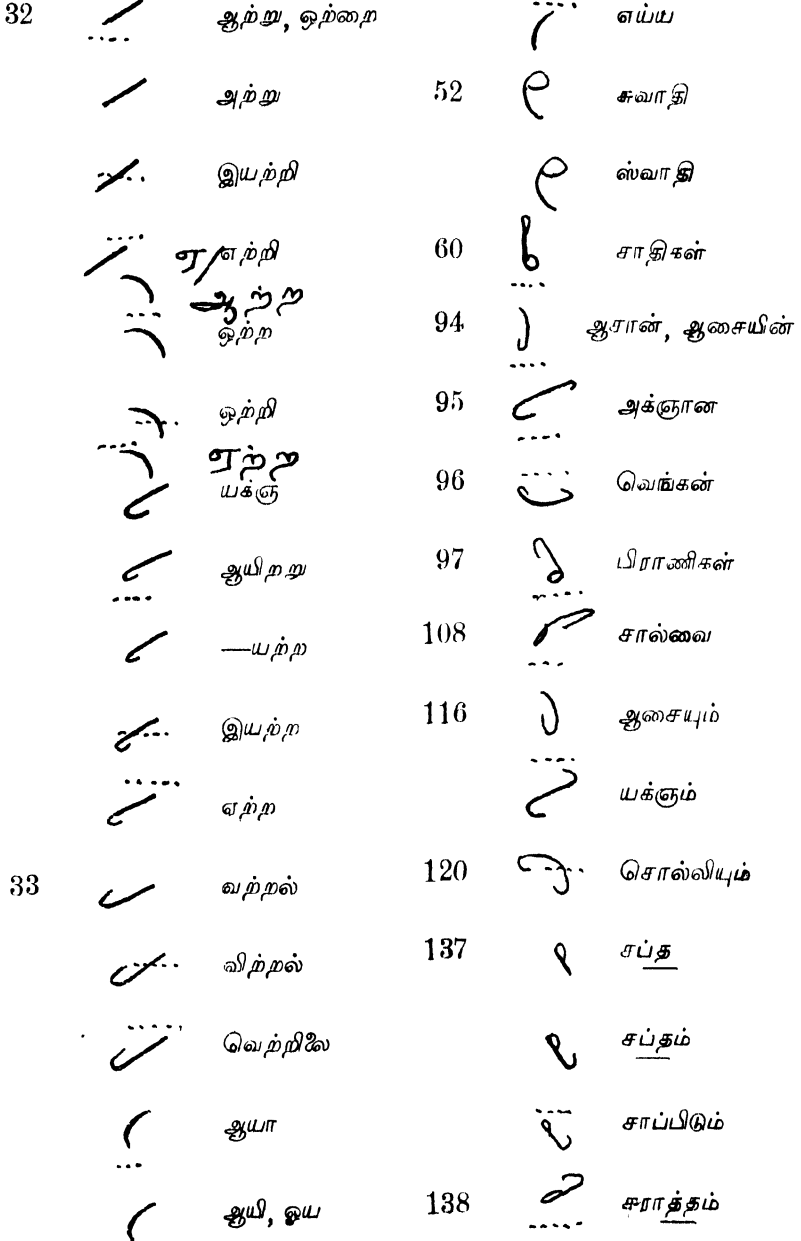 32 ஆற்று, ஒற்றை
அற்று
இயற்றி
ஏ/எற்றி
ஆற்ற
ஒற்ற
ஒற்றி
ஏற்ற
யக்ஞ
ஆயிற்று
—யற்ற
இயற்ற
ஏற்ற
33 வற்றல்
விற்றல்
வெற்றிலை
ஆயா
ஆயி, ஓய
எய்ய
52 சுவாதி
ஸ்வாதி
60 சாதிகள்
94 ஆரான், ஆசையின்
95 அக்ஞான
96 வெங்கன்
97 பிராணிகள்
108 சால்வை
116 ஆசையும்
யக்ஞம்
120 சொல்லியும்
137 சப்த
சப்தம்
சாப்பிடும்
138 சுராத்தம்